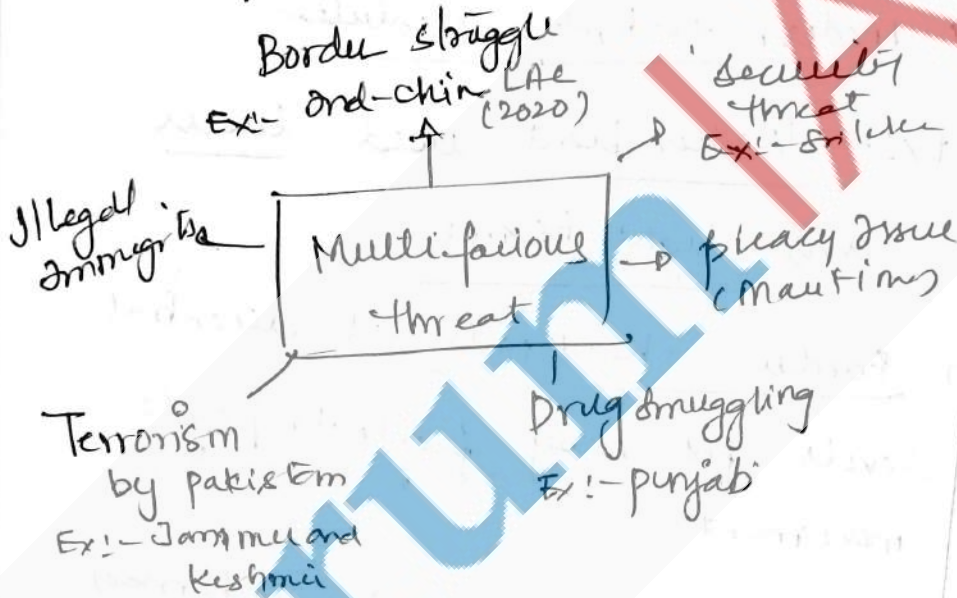 Border struggle
Ex:- Ind-China LAC
(2020)
Security
threat
Ex:- Sri lanka
Illegal
Immigration
Multifarious
threat
piracy issue
(Maritime)
Terrorism
by pakistan
Ex:- Jammu and
Keshmir
Drug smuggling
Ex:- punjab
rum IA